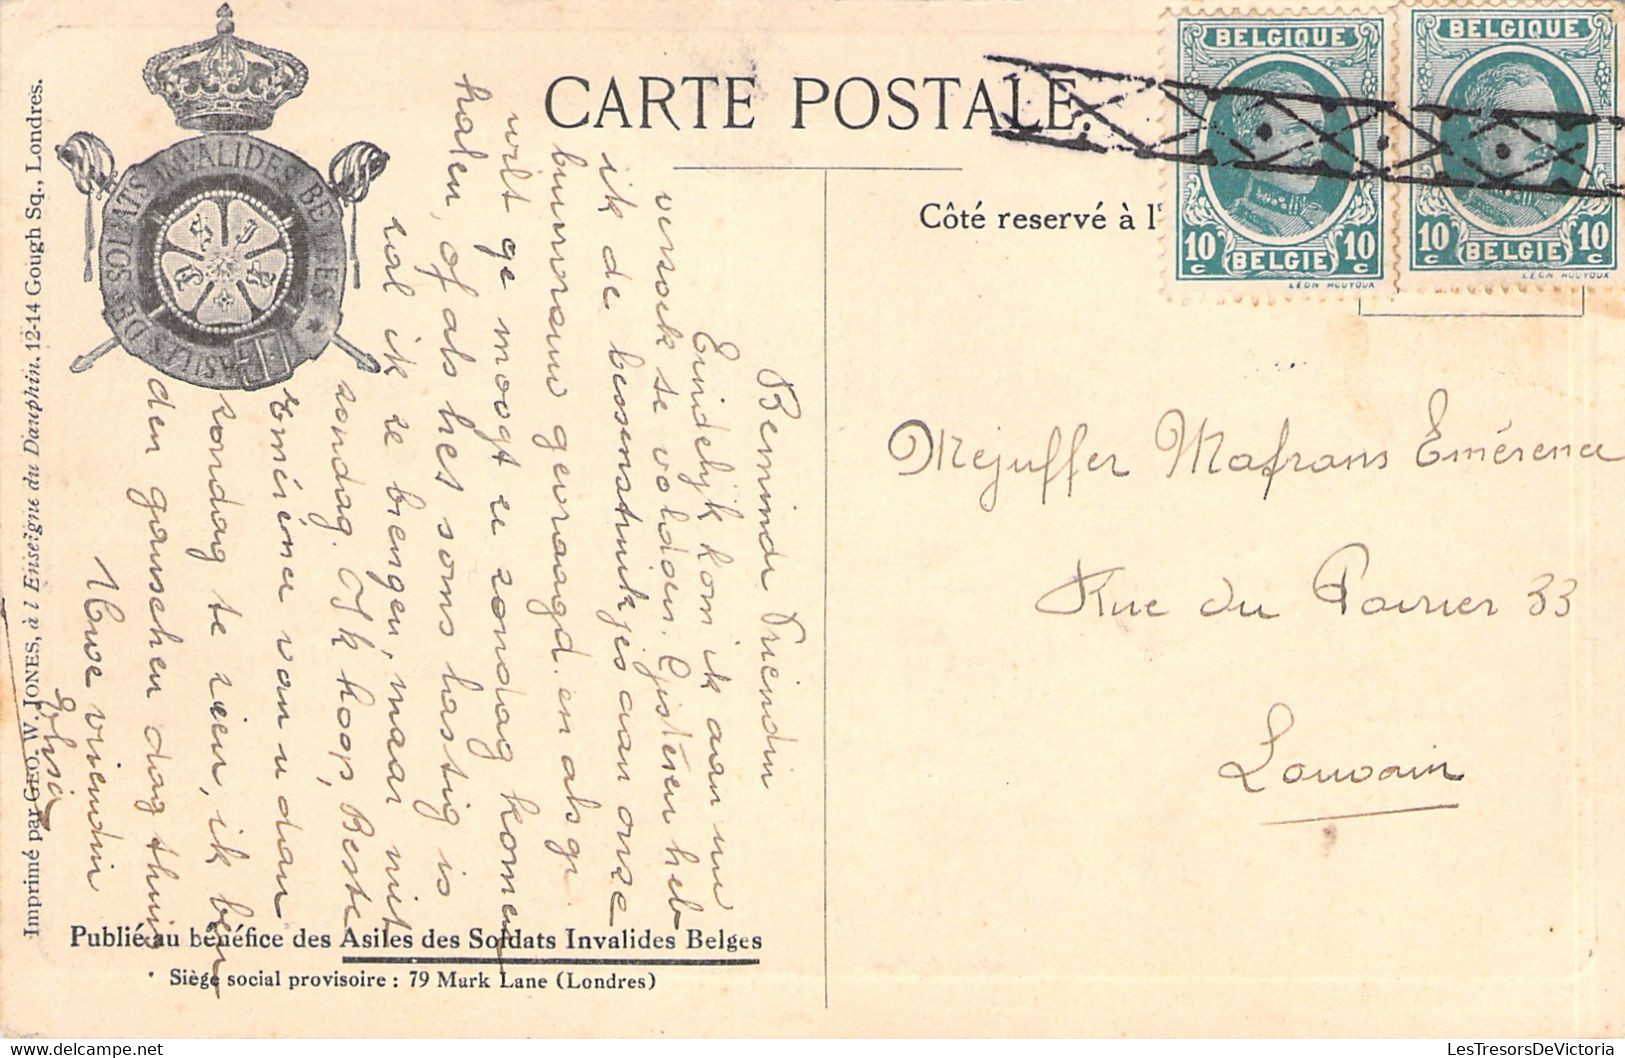 CARTE POSTALE
Côté reservé à l'
BELGIQUE
10 c 10 c
BELGIE
LÉON HOUYOUX
BELGIQUE
10 c 10 c
BELGIE
LÉON HOUYOUX
ASILES DES SOLDATS INVALIDES BELGES
Imprimé par GEO. W. JONES, à l'Enseigne du Dauphin, 12-14 Gough Sq., Londres.
Beminde Vriendin
Eindelijk kom ik aan uw
versoek te voldoen. Gisteren heb
ik de bessenstruikjes aan onze
buurvrouw gevraagd en als ge
wilt ge moogt ze zondag komen
halen, of als het soms lastig is
zal ik ze brengen, maar niet
zondag. Ik hoop, Beste
Emérence van u dan
zondag te zien, ik ben
den ganschen dag thuis
Uwe vriendin
Mejuffer Mafrans Emérence
Rue du Poirier 33
Louvain
Publié au bénéfice des Asiles des Soldats Invalides Belges
Siège social provisoire : 79 Mark Lane (Londres)
LesTresorsDeVictoria